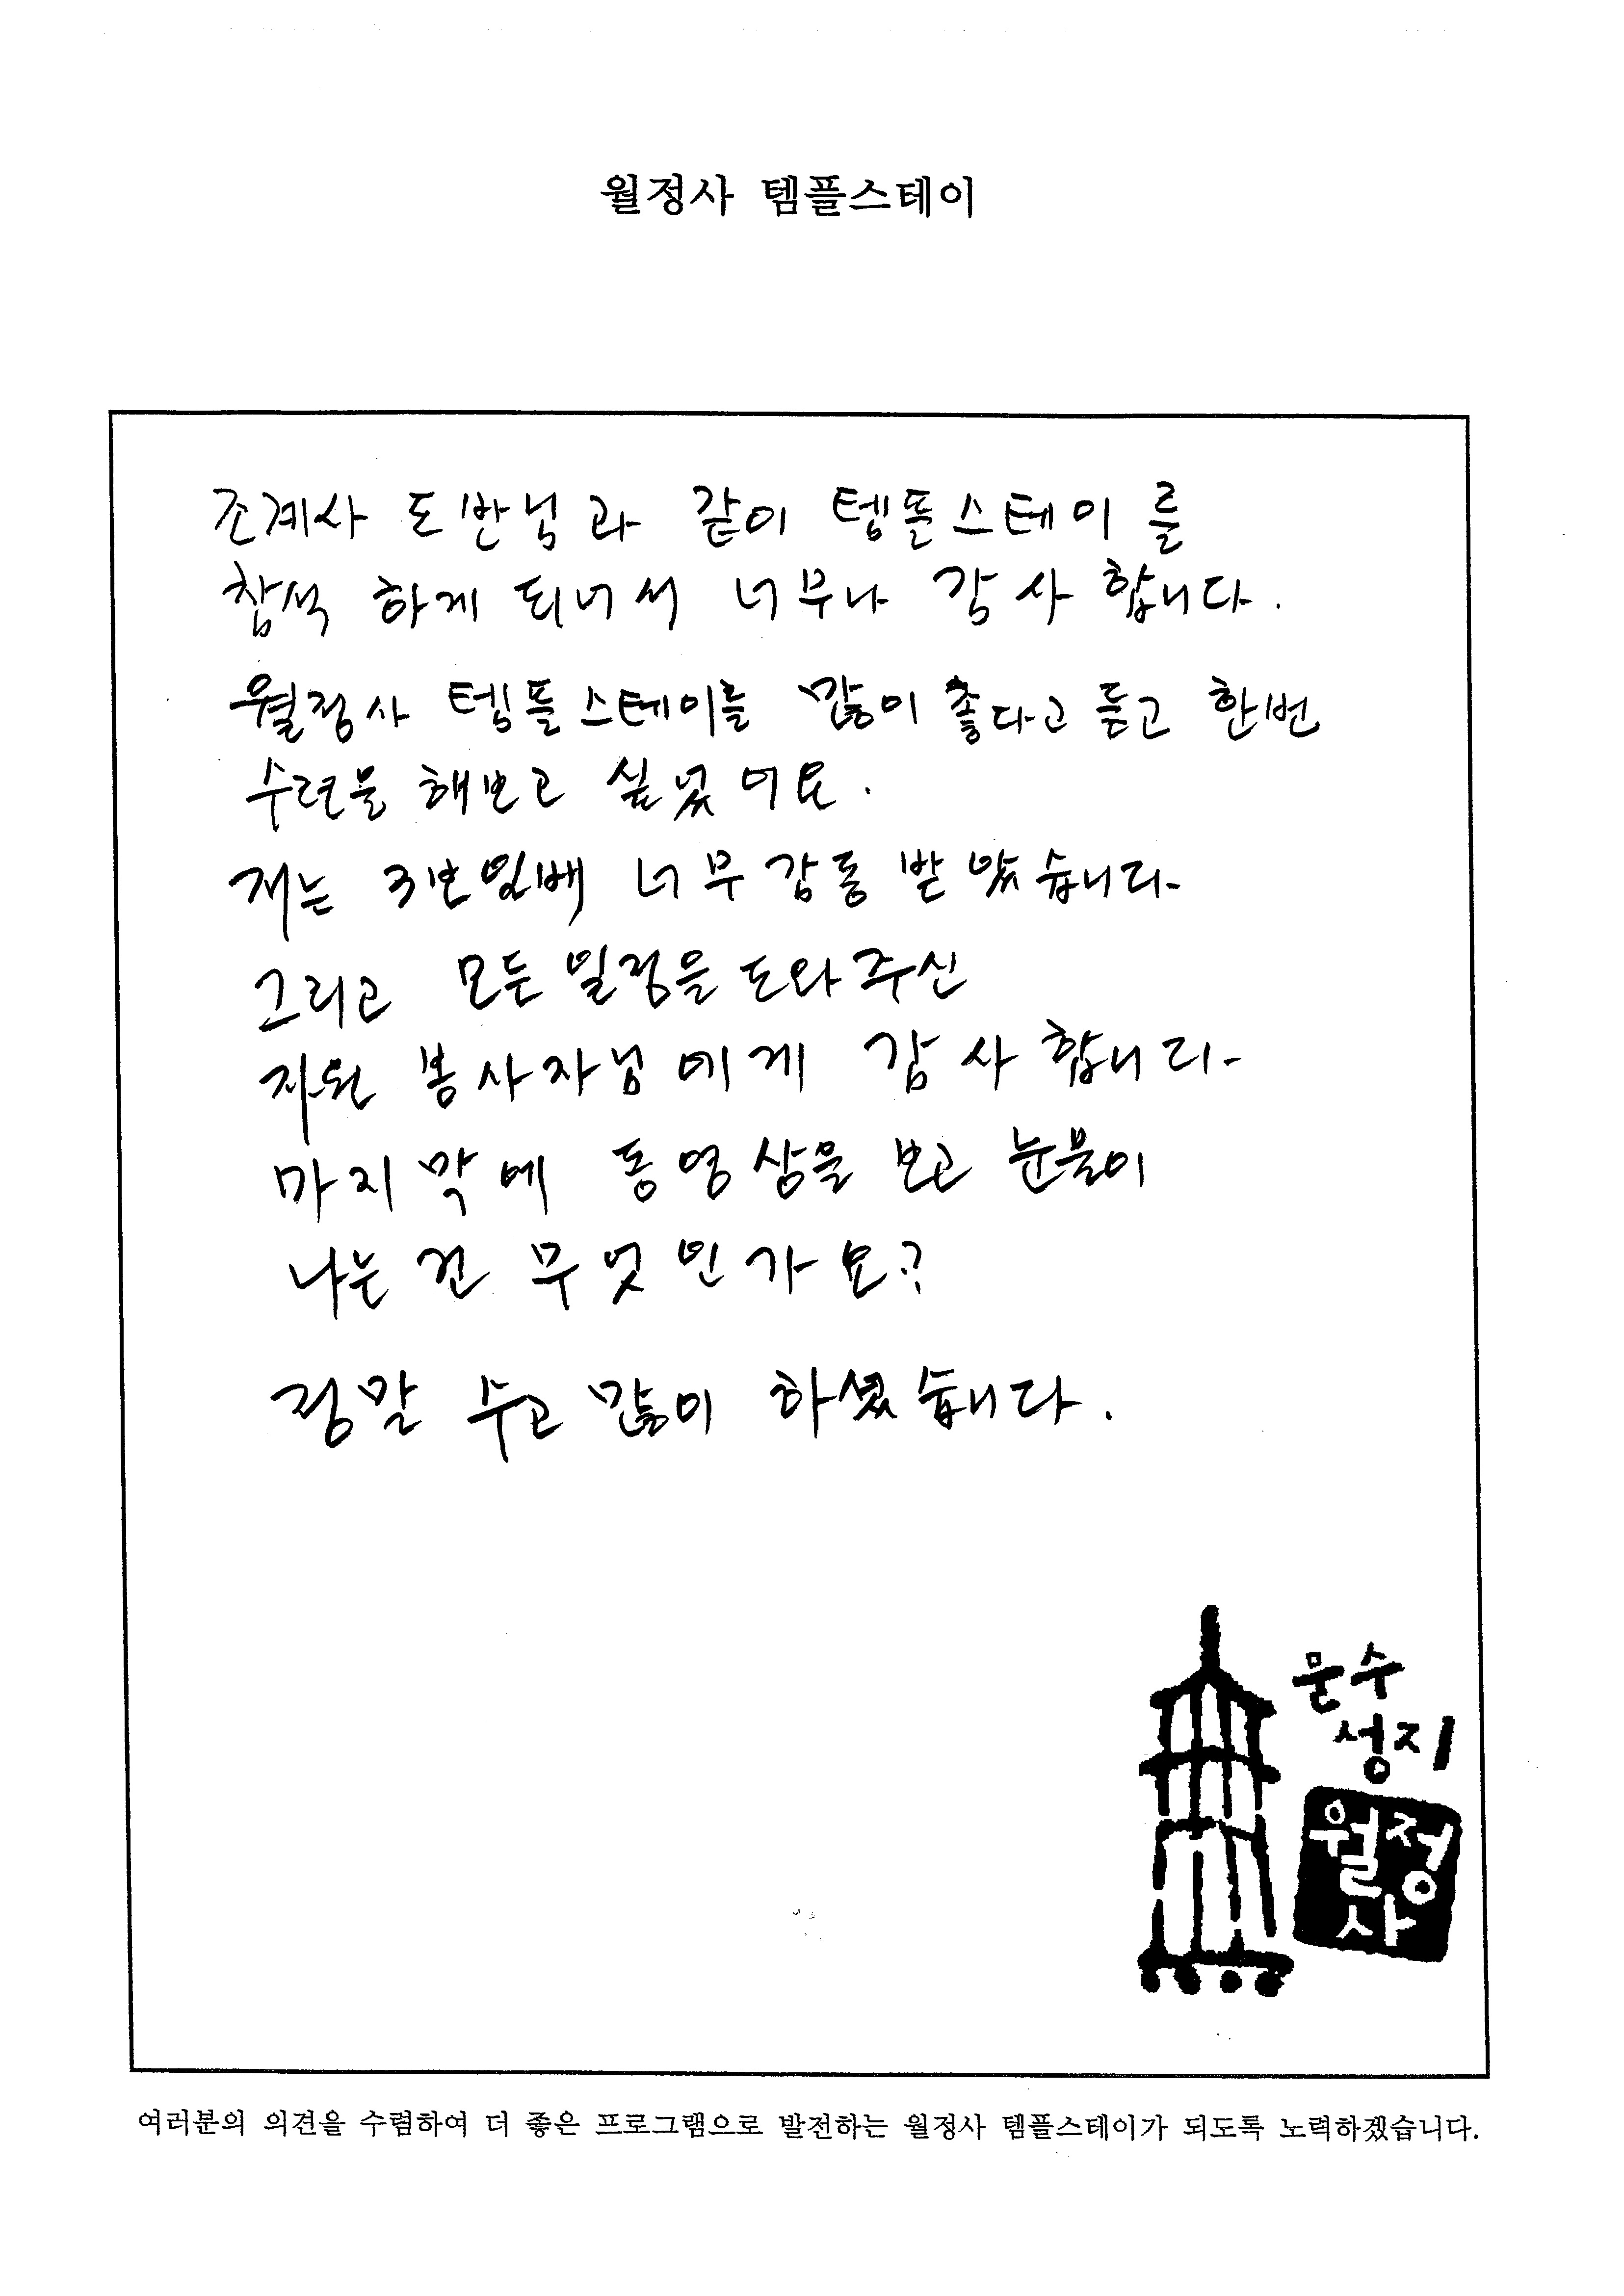 월정사 템플스테이
조계사 도반님과 같이 템플스테이를
참석 하게 되너서 너무나 감사 합니다.
월정사 템플스테이를 많이 좋다고 듣고 한번
수련을 해보고 싶었어요.
저는 3보일배 너무 감동 받았습니다
그리고 모든 일정을 도와주신
자원 봉사자님에게 감사합니다
마지막에 동영상을 보고 눈물이
나는 건 무엇인가요?
정말 수고 많이 하셨습니다.
문수
성지
월정
사
여러분의 의견을 수렴하여 더 좋은 프로그램으로 발전하는 월정사 템플스테이가 되도록 노력하겠습니다.